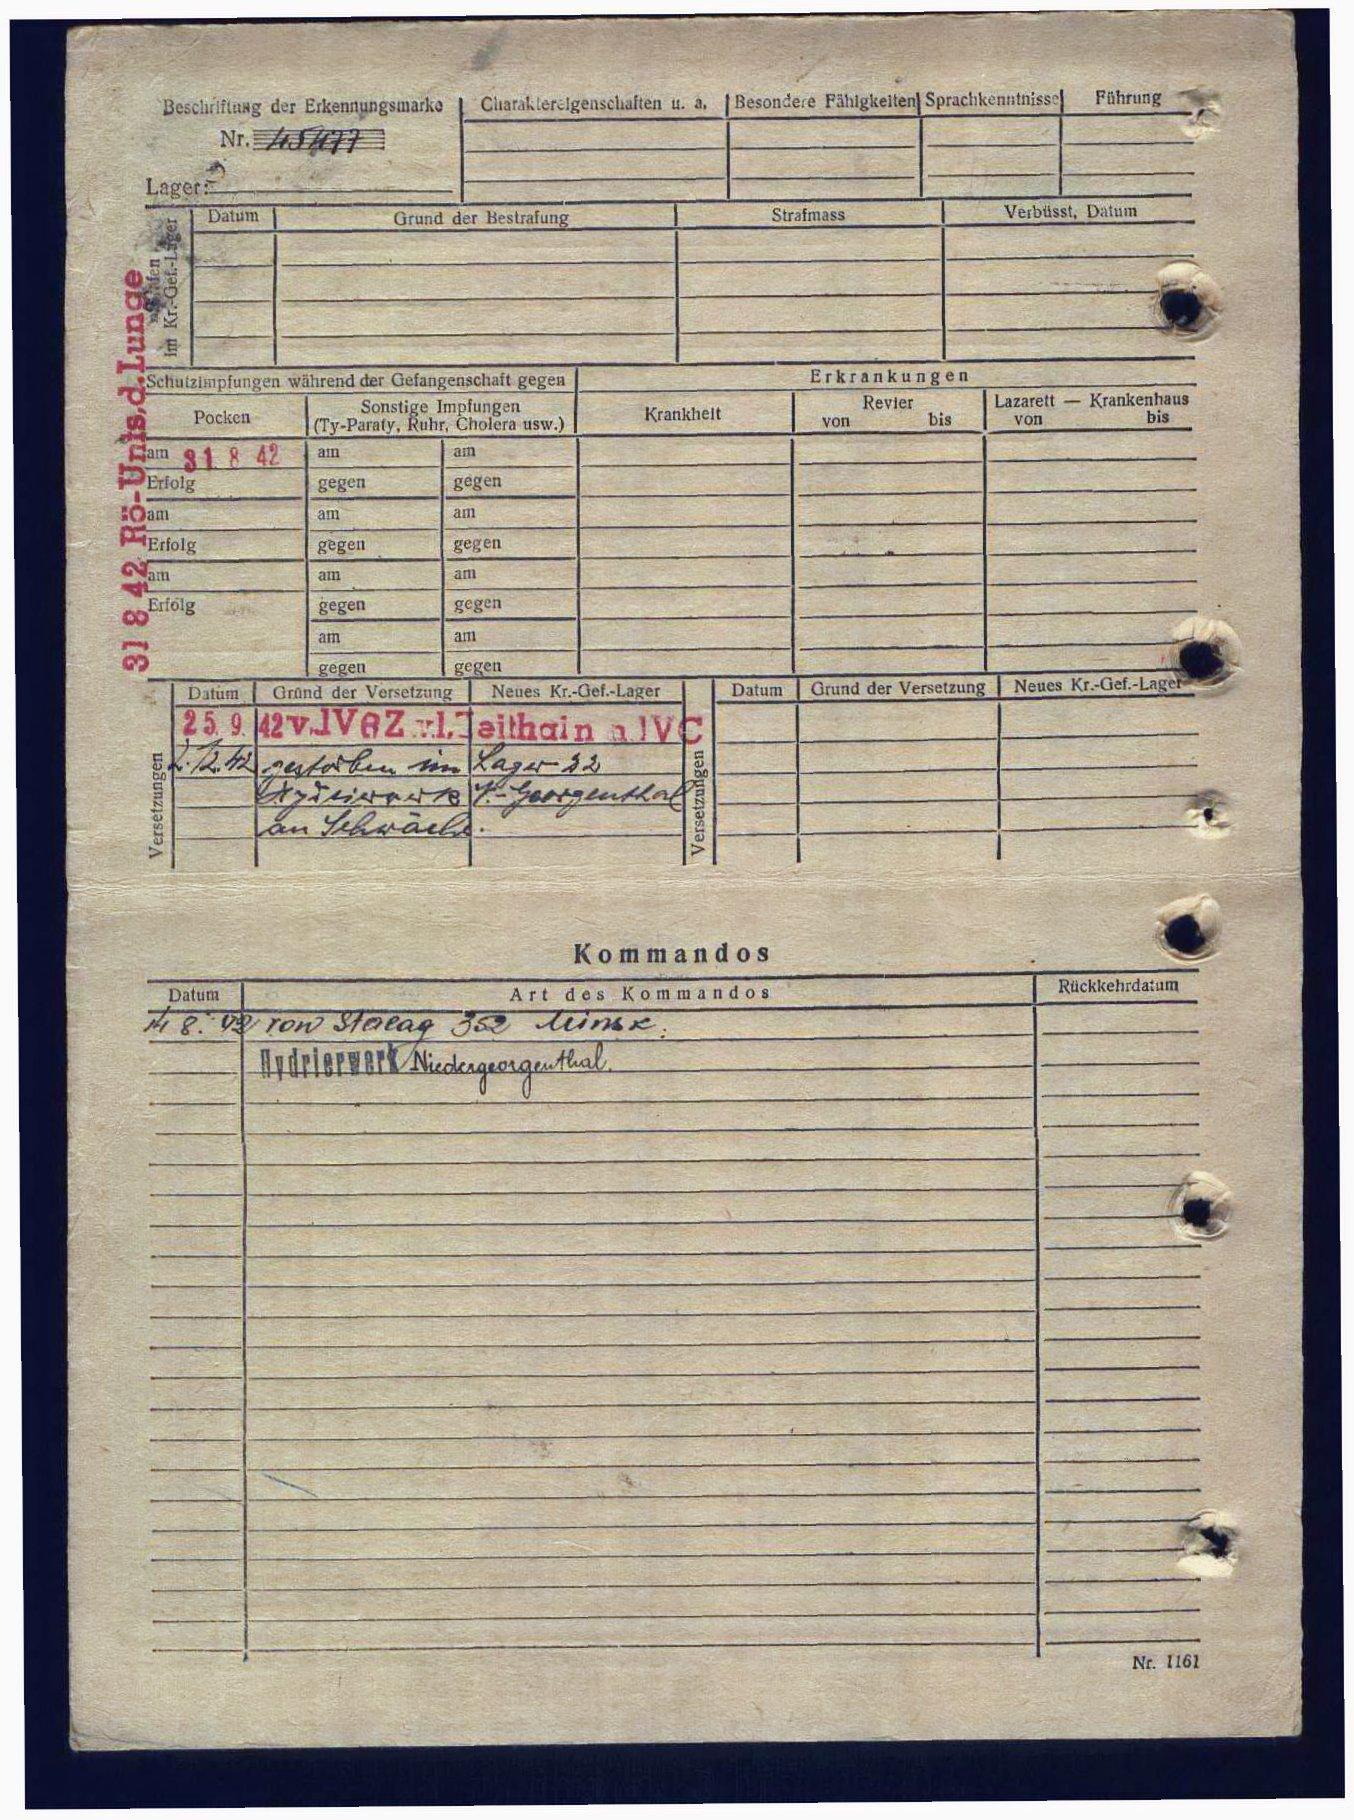 Beschriftung der Erkennungsmarke
Nr. 45477
Lager:
Charaktereigenschaften u. a. Besondere Fähigkeiten Sprachkenntnisse Führung
im Kr.-Gef.-Lager
Datum Grund der Bestrafung Strafmass Verbüsst, Datum
31 8 42 Rö-Unts.d.Lunge
Schutzimpfungen während der Gefangenschaft gegen
Erkrankungen
Pocken
Sonstige Impfungen
(Ty-Paraty, Ruhr, Cholera usw.)
Krankheit
Revier
von bis
Lazarett — Krankenhaus
von bis
am 31 8 42 am am
Erfolg gegen gegen
am am am
Erfolg gegen gegen
am am am
Erfolg gegen gegen
am am
gegen gegen
Versetzungen
Datum Grund der Versetzung Neues Kr.-Gef.-Lager
25 9. 42 v. IV B Z n IV C
2.12.42 gestorben im Lager 22
Hydrierwerk N.-Georgenthal
an Schwäche.
Versetzungen
Datum Grund der Versetzung Neues Kr.-Gef.-Lager
Kommandos
Datum Art des Kommandos Rückkehrdatum
8. 42 von Stalag 352 Minsk.
Hydrierwerk Niedergeorgenthal.
Nr. 1161